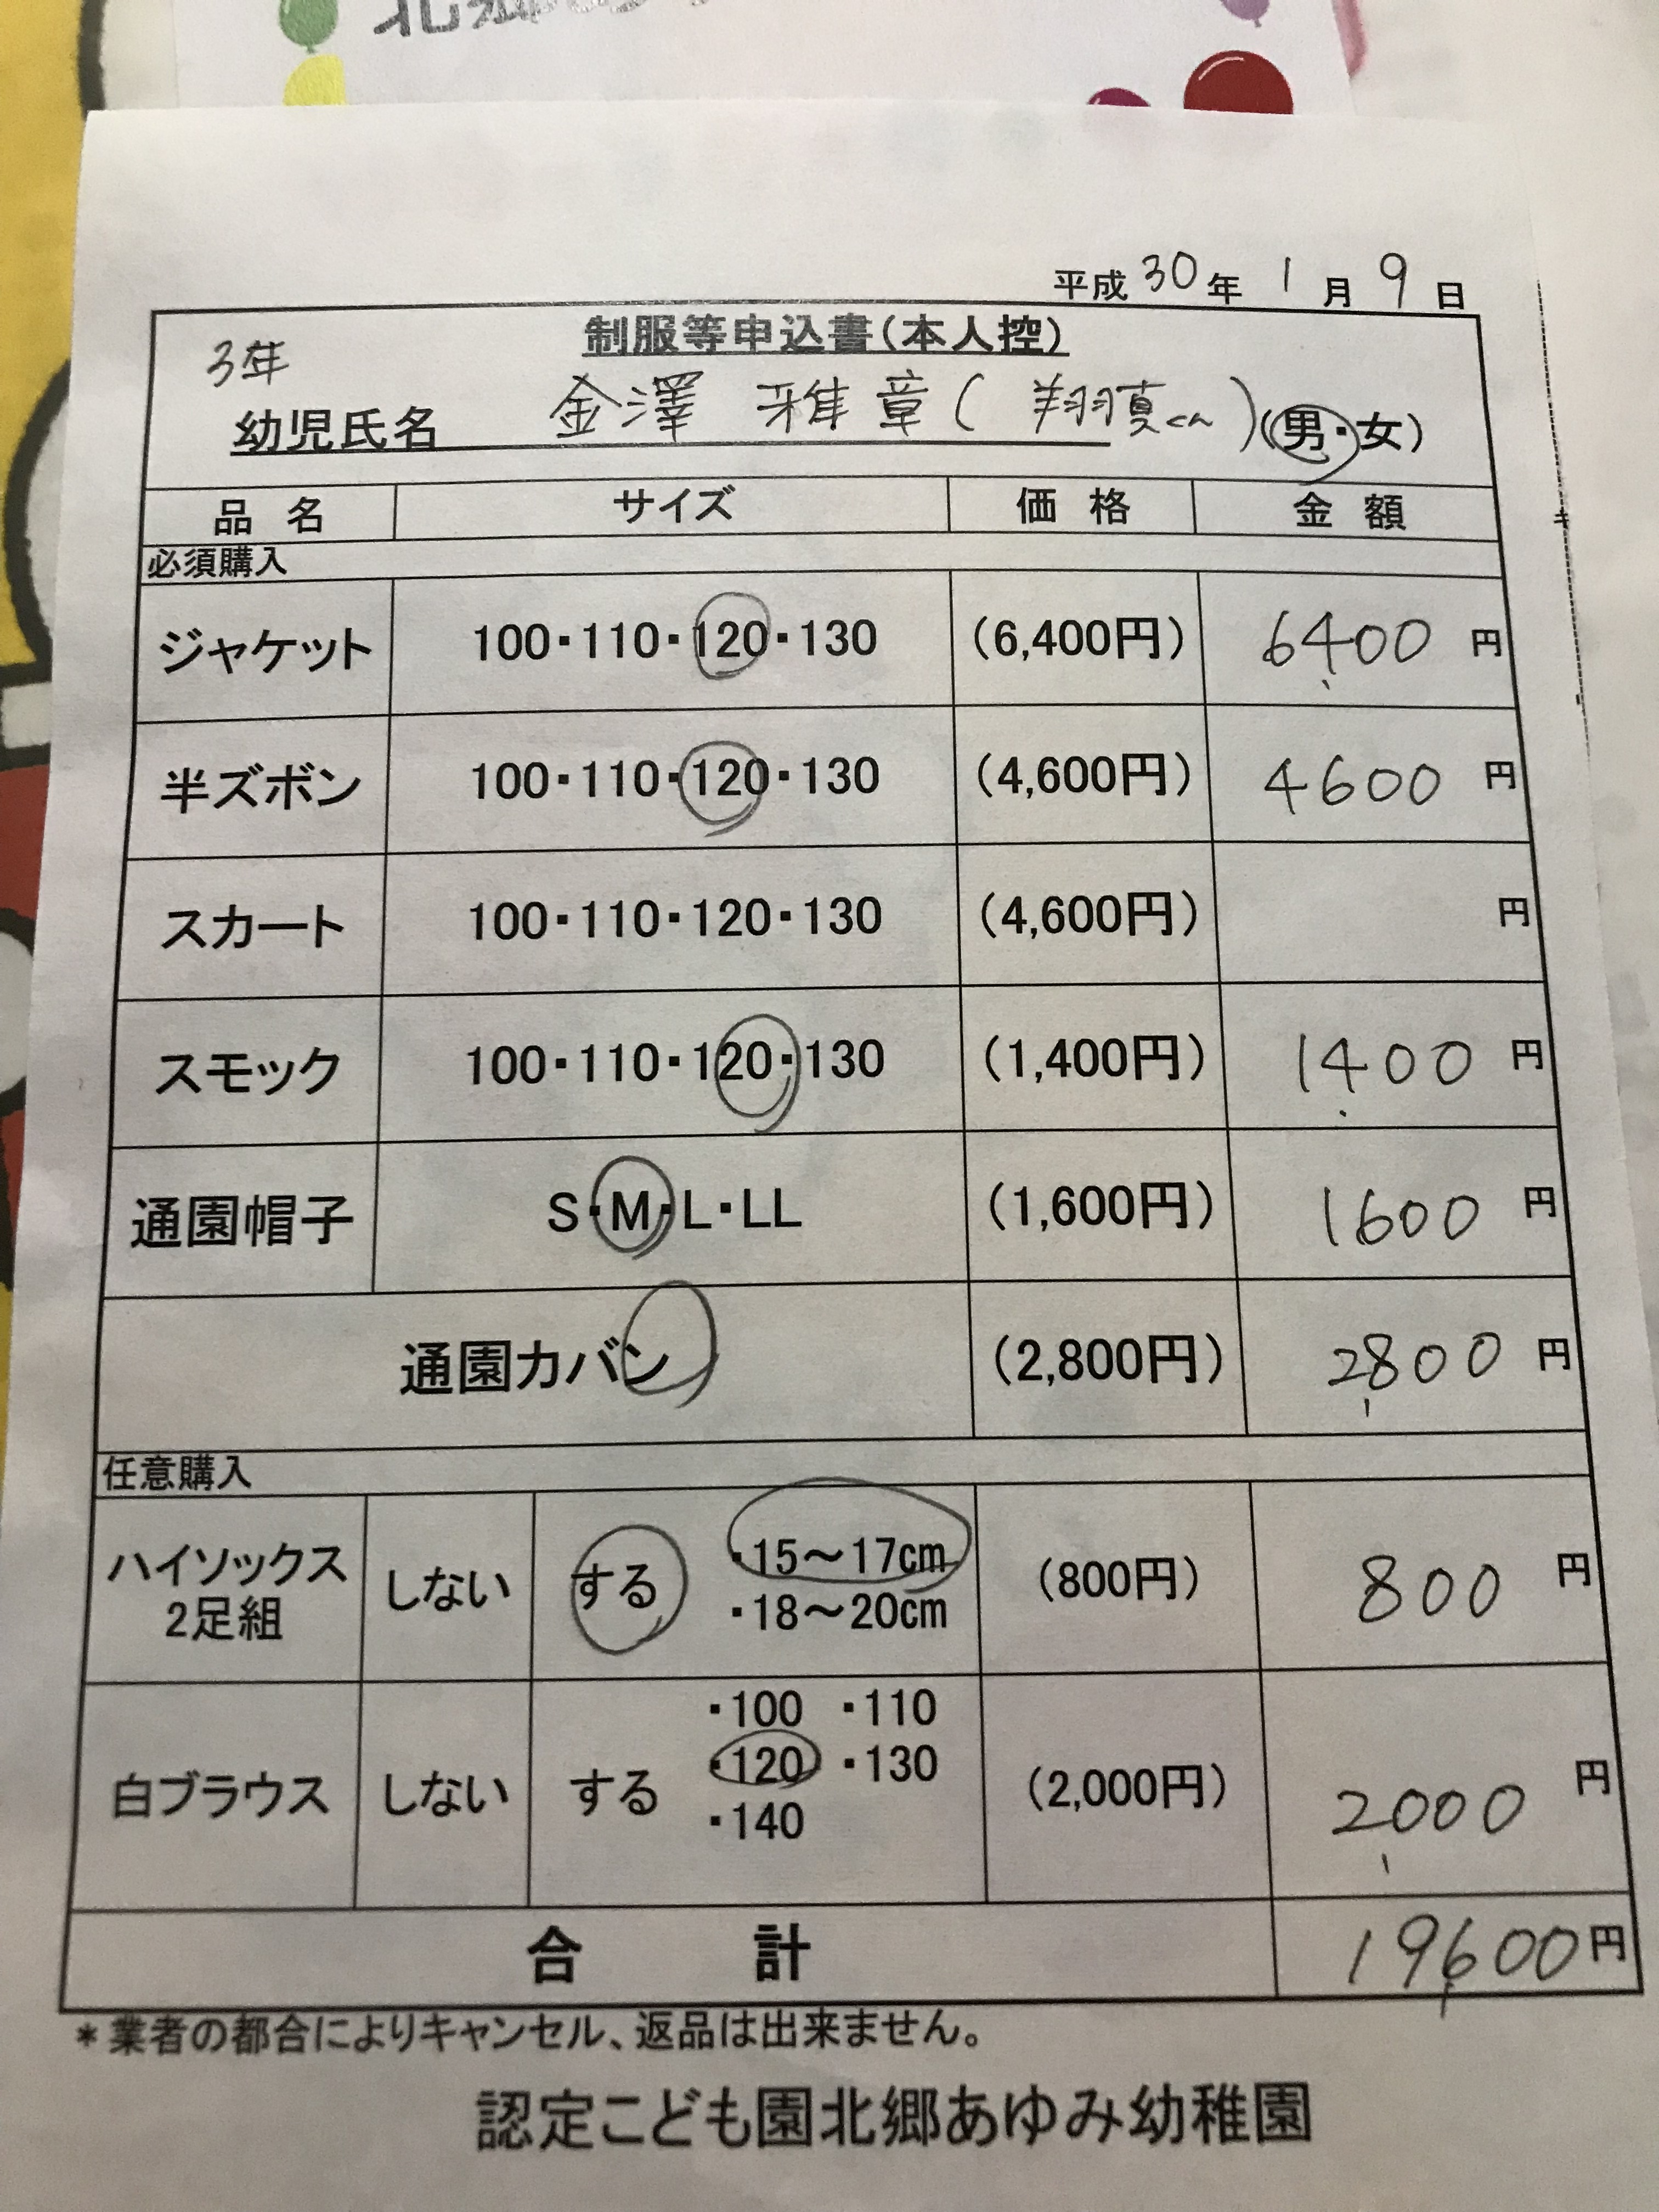 平成 30 年 1 月 9 日
制服等申込書(本人控)
3年
幼児氏名 金澤 雅章( 翔真くん )(男・女)
品 名 サイズ 価 格 金 額
必須購入
ジャケット 100・110・120・130 (6,400円) 6,400 円
半ズボン 100・110・120・130 (4,600円) 4600 円
スカート 100・110・120・130 (4,600円) 円
スモック 100・110・120・130 (1,400円) 1,400 円
通園帽子 S・M・L・LL (1,600円) 1600 円
通園カバン (2,800円) 2,800 円
任意購入
ハイソックス 2足組 しない する ・15～17cm ・18～20cm (800円) 800 円
白ブラウス しない する ・100 ・110 ・120 ・130 ・140 (2,000円) 2,000 円
合 計 19,600円
*業者の都合によりキャンセル、返品は出来ません。
認定こども園北郷あゆみ幼稚園